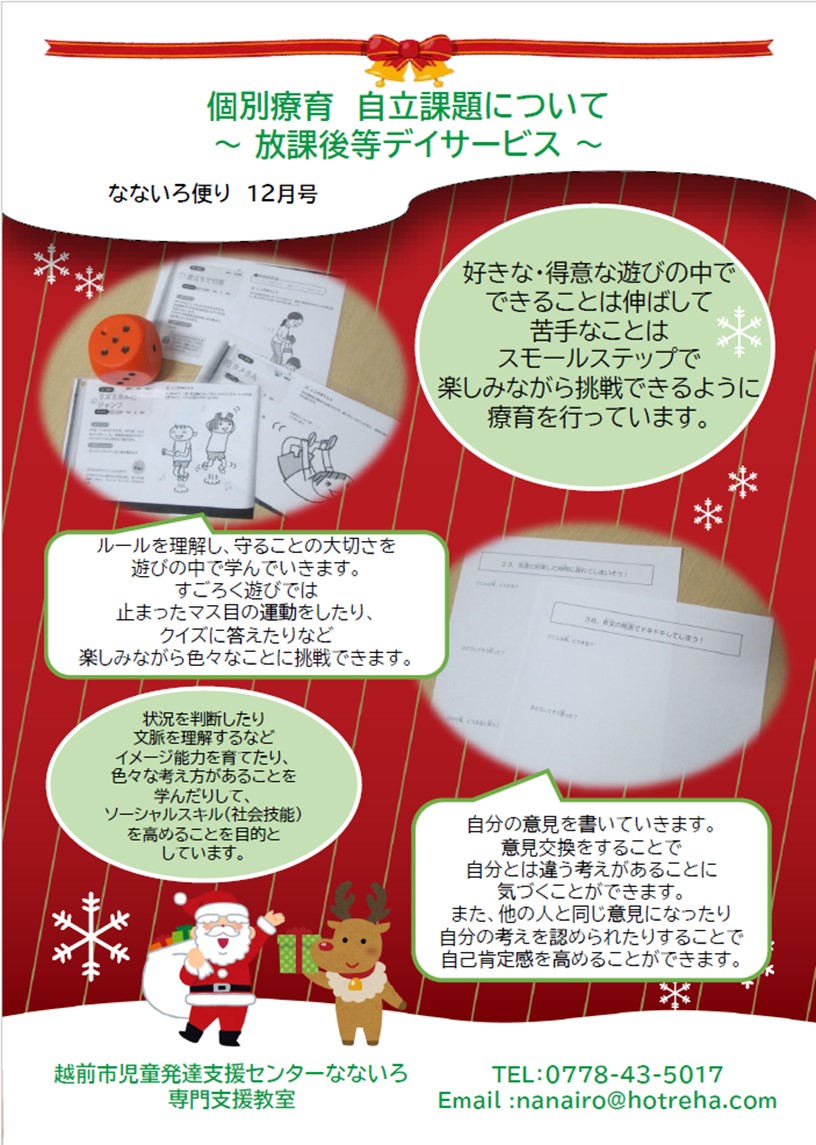 個別療育　自立課題について
～ 放課後等デイサービス ～
なないろ便り　12月号
好きな・得意な遊びの中で
できることは伸ばして
苦手なことは
スモールステップで
楽しみながら挑戦できるように
療育を行っています。
ジャンプ
ルールを理解し、守ることの大切さを
遊びの中で学んでいきます。
すごろく遊びでは
止まったマス目の運動をしたり、
クイズに答えたりなど
楽しみながら色々なことに挑戦できます。
状況を判断したり
文脈を理解するなど
イメージ能力を育てたり、
色々な考え方があることを
学んだりして、
ソーシャルスキル（社会技能）
を高めることを目的と
しています。
自分の意見を書いていきます。
意見交換をすることで
自分とは違う考えがあることに
気づくことができます。
また、他の人と同じ意見になったり
自分の考えを認められたりすることで
自己肯定感を高めることができます。
越前市児童発達支援センターなないろ
専門支援教室
TEL：0778-43-5017
Email :nanairo@hotreha.com